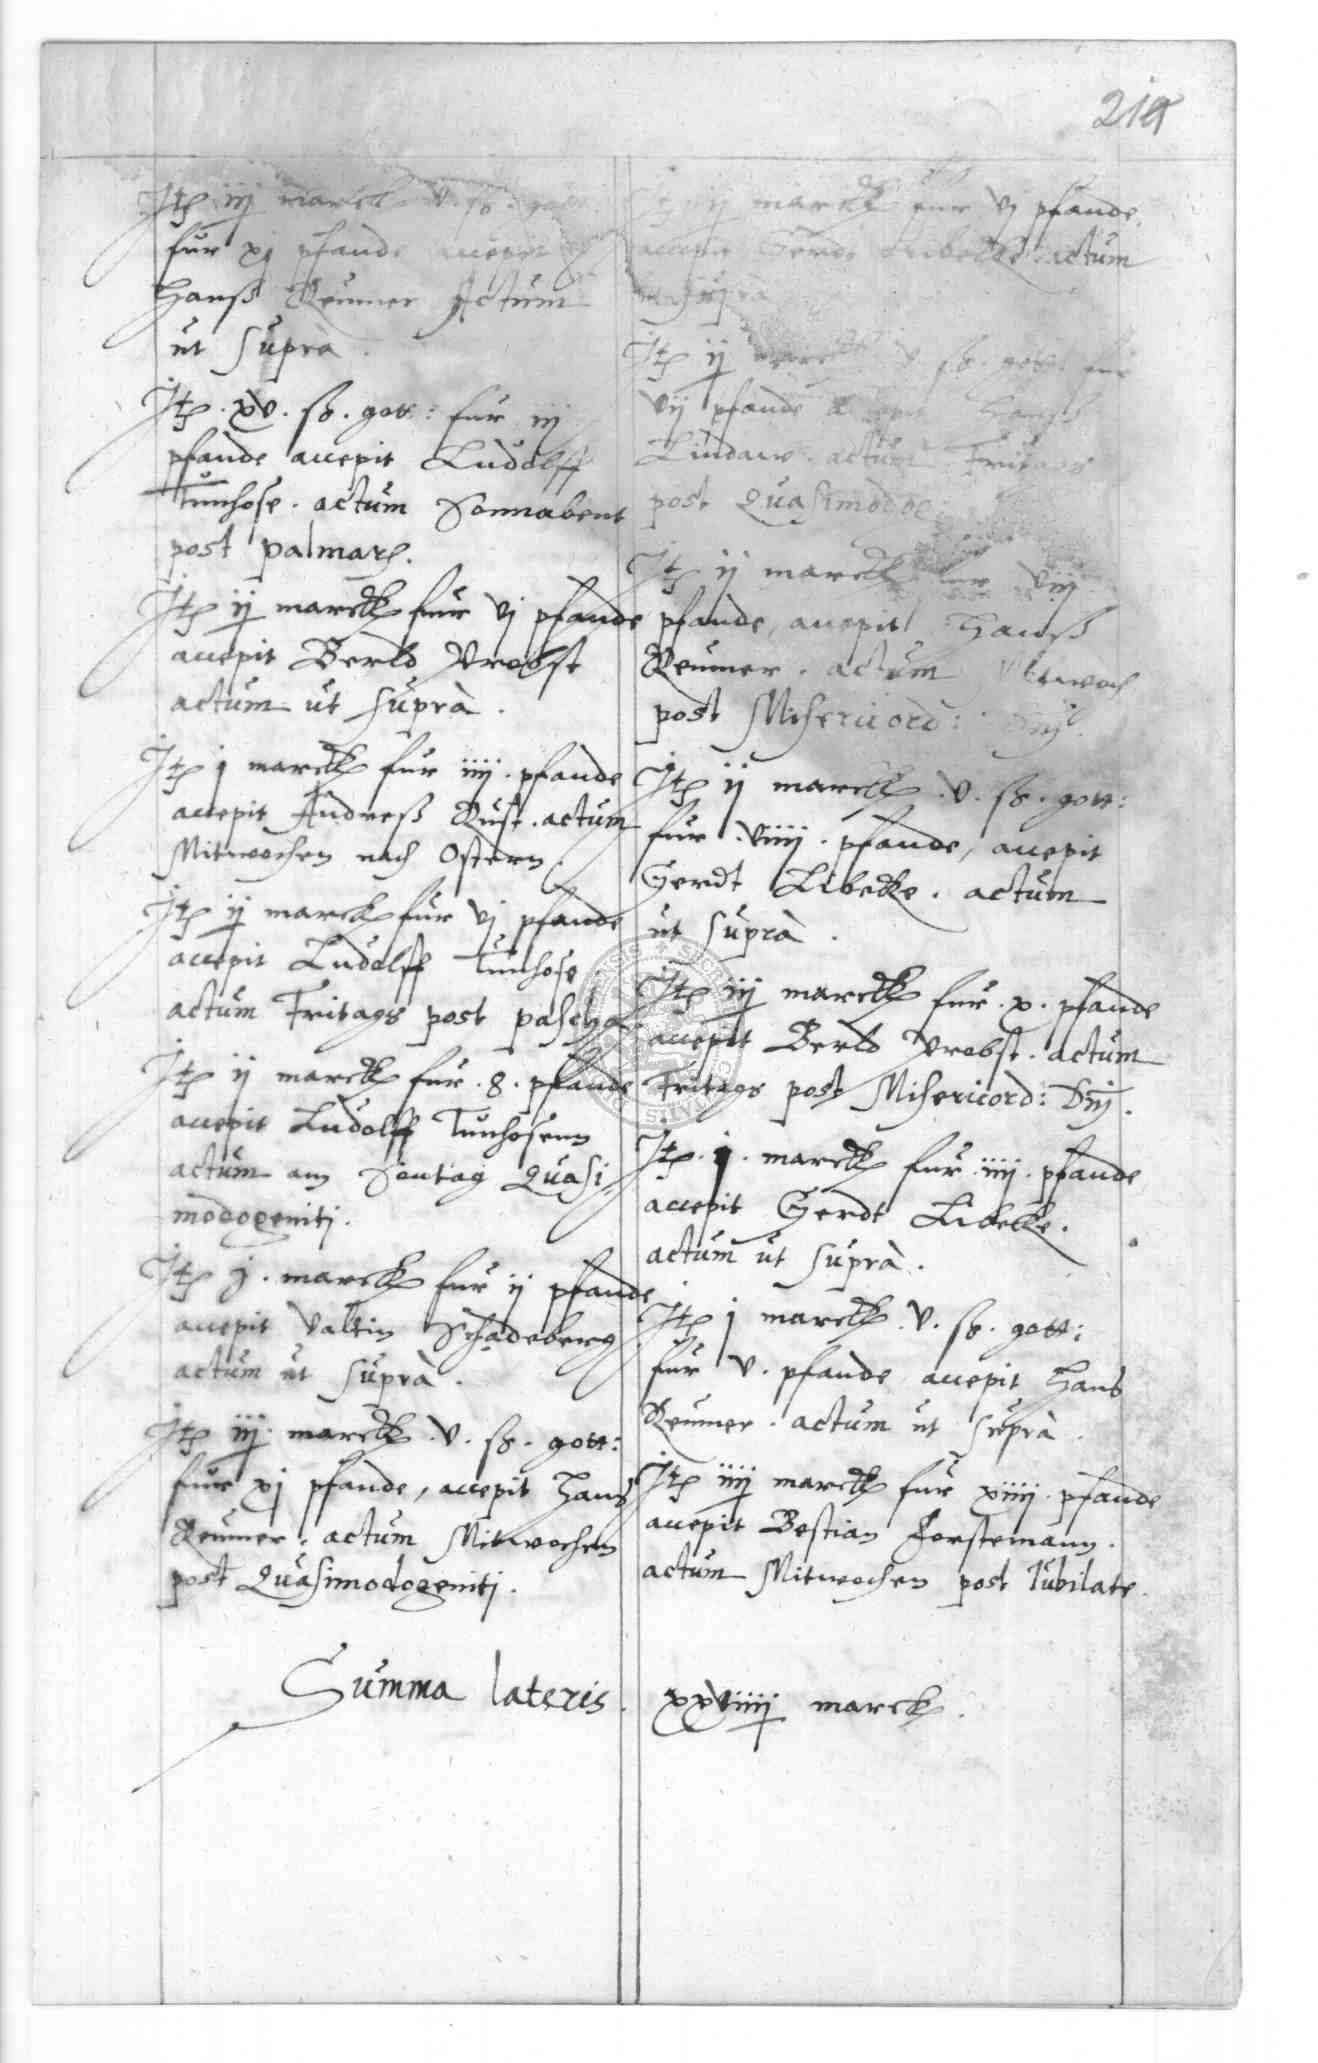 214
Itē iij marck v. sß. gott:
fur xj pfande accepit
Hanß Reumer Actum
ut supra.
Itē. xv. sß. gott: fur iij
pfande accepit Ludolff
Tunhose. actum Sonnabent
post palmarū.
Itē ij marck fur vj pfande
accepit Berld Probst
actum ut suprà.
Itē j marck fur iiij. pfande
accepit Andreß Rust. actum
Mitwochen nach Ostern.
Itē ij marck fur vj pfande
accepit Ludolff Tunhose
actum Fritags post pascha.
Itē ij marck fur. 8. pfande
accepit Ludolff Tunhosenn
actum am Sontag Quasi
modogeniti.
Itē j. marck fur ij pfande
accepit Valtin Schadeberg
actum ut suprà.
Itē iij marck. v. sß. gott:
fur xj pfande, accepit Hans
Reumer. actum Mitwochen
post Quasimodogeniti.
ij marck fur vj pfande,
accepit Gerdt Libecke. actum
supra
Itē ij marck v. sß. gott: fur
vij pfande accepit Hanß
Lindaw. actum Fritags
post Quasimodog
Itē ij marck fur viij
pfande, accepit Hanß
Reumer. actum Mitwoch
post Misericord: Dnj.
Itē ij marck. v. sß. gott:
fur. viiij. pfande, accepit
Gerdt Libecke. actum
ut suprà.
Itē iij marck fur. x. pfande
accepit Berld Probst. actum
Fritags post Misericord: Dnj.
Itē. j. marck fur. iiij. pfande
accepit Gerdt Libecke.
actum ut suprà.
Itē j marck. v. sß. gott:
fur v. pfande accepit Hans
Reumer. actum ut suprà.
Itē iiij marck fur xiiij. pfande
accepit Bestian Forstemann.
actum Mitwochen post Iubilate.
Summa lateris. xxviiij marck.